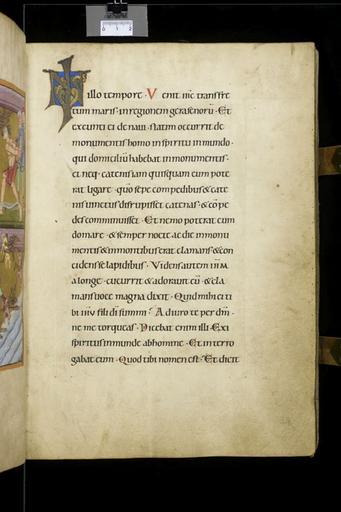 In illo tempore · Venit iħc trans fre
tum maris · in regionem gerasenorū · Et
exeunti ei de naui · statim occurrit de
monumentis homo in spiritu inmundo ·
qui domiciliū habebat in monumentis ·
et neq; catenis iam quisquam eum pote
rat ligare · quō sepe compedibus & cate
nis uinctus disrupisset catenas · & cōpe
des comminuisset · Et nemo poterat eum
domare · & semper nocte ac die in monu
mentis & in montibus erat clamans & con
cidens se lapidibus · Videns autem iħm
a longe · cucurrit & adorauit eū · & cla
mans uoce magna dixit · Quid mihi et ti
bi iħu fili dī summi? Adiuro te per dm̄ ·
ne me torqueas · Dicebat enim illi · Exi
spiritus inmunde ab homine · Et interro
gabat eum · Quod tibi nomen est · Et dicit